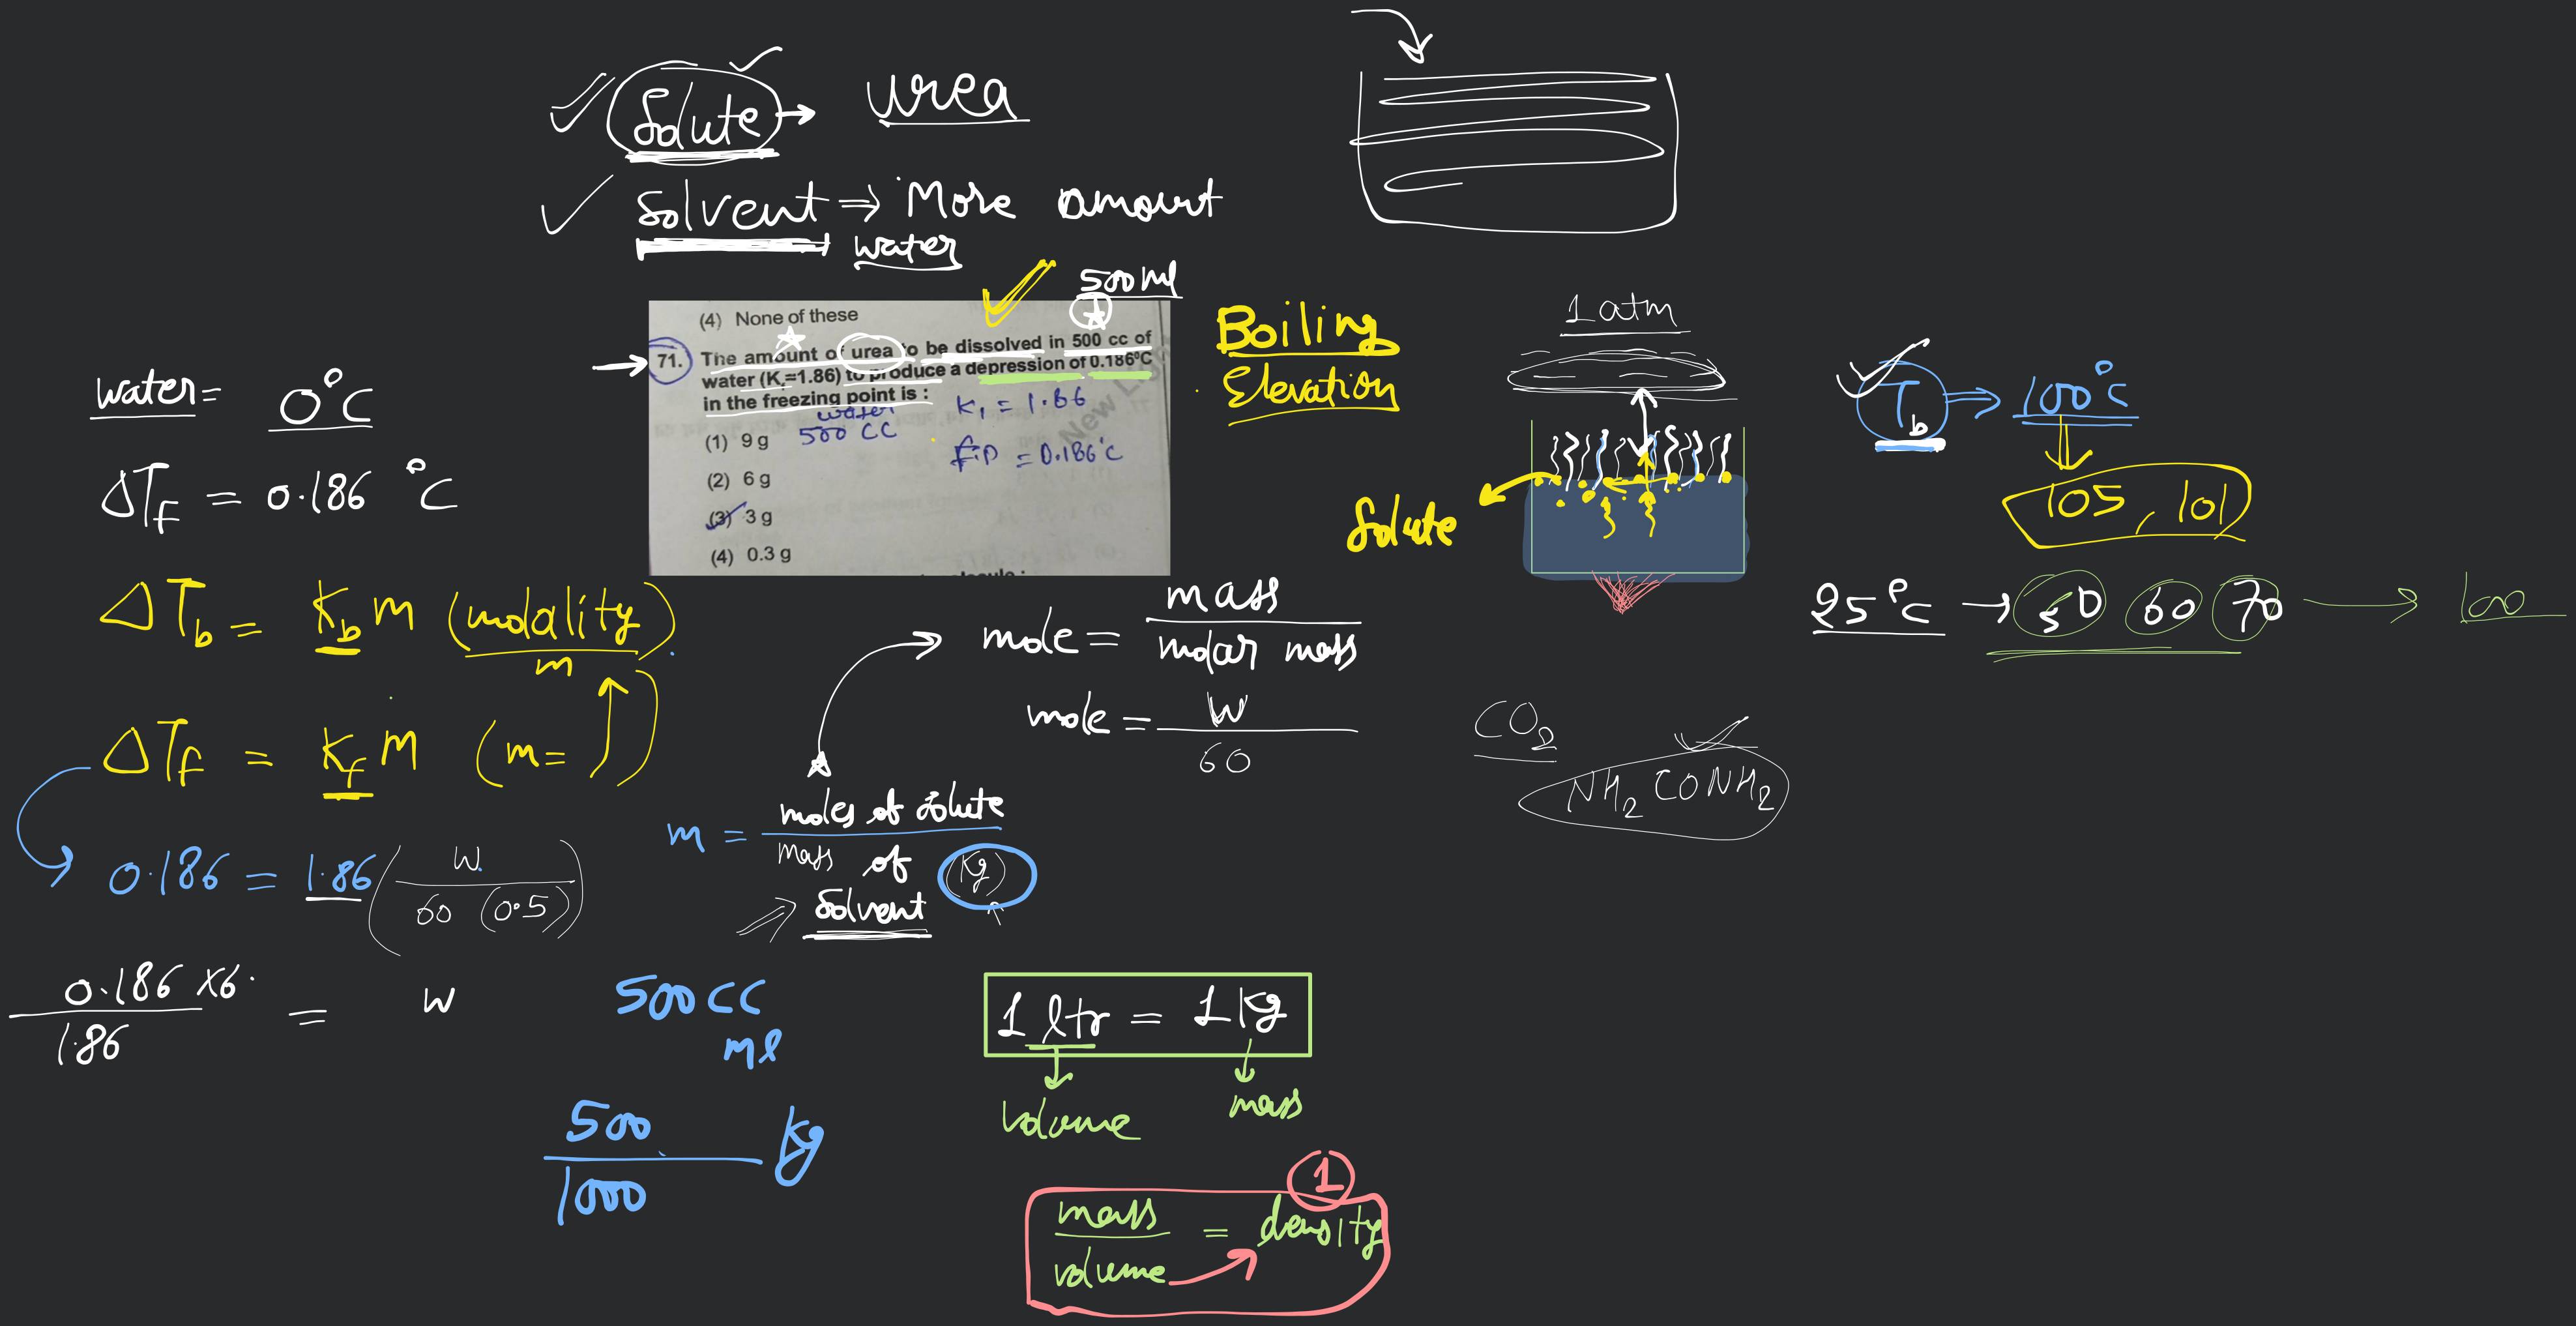 Solute → urea
Solvent ⇒ More amount
water
500 ml
(4) None of these
71. The amount of urea to be dissolved in 500 cc of
water (Kf=1.86) to produce a depression of 0.186°C
in the freezing point is :
water
500 CC
K, = 1.86
f.p = 0.186°c
(1) 9 g
(2) 6 g
(3) 3 g
(4) 0.3 g
Boiling
Elevation
1 atm
Solute
Tb ⇒ 100°c
105, 101
25°c → 50 60 70 → 100
water = 0°C
ΔTf = 0.186 °C
ΔTb = Kb m (molality)
m
ΔTf = Kf m (m= )
0.186 = 1.86 ( W / 60 (0.5) )
0.186 x6. / 1.86 = W
mole = mass / molar mass
mole = W / 60
m = moles of solute / mass of (Kg)
Solvent
CO2
NH2CONH2
500 CC
ml
500 / 1000 kg
1 ltr = 1 Kg
volume
mass
1
mass / volume = density